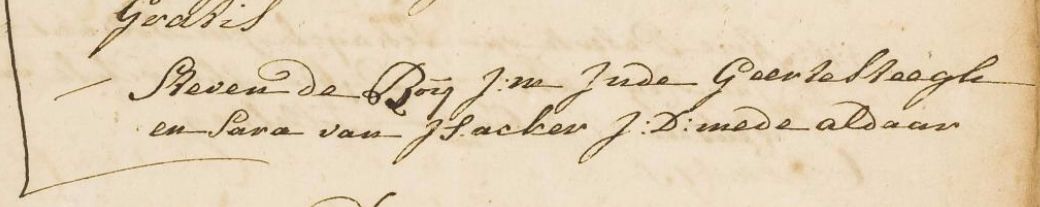 Gratis
Steven de Roÿ J:m Inde Geertesteegh
en Sara van IJSacker J:D: mede aldaar